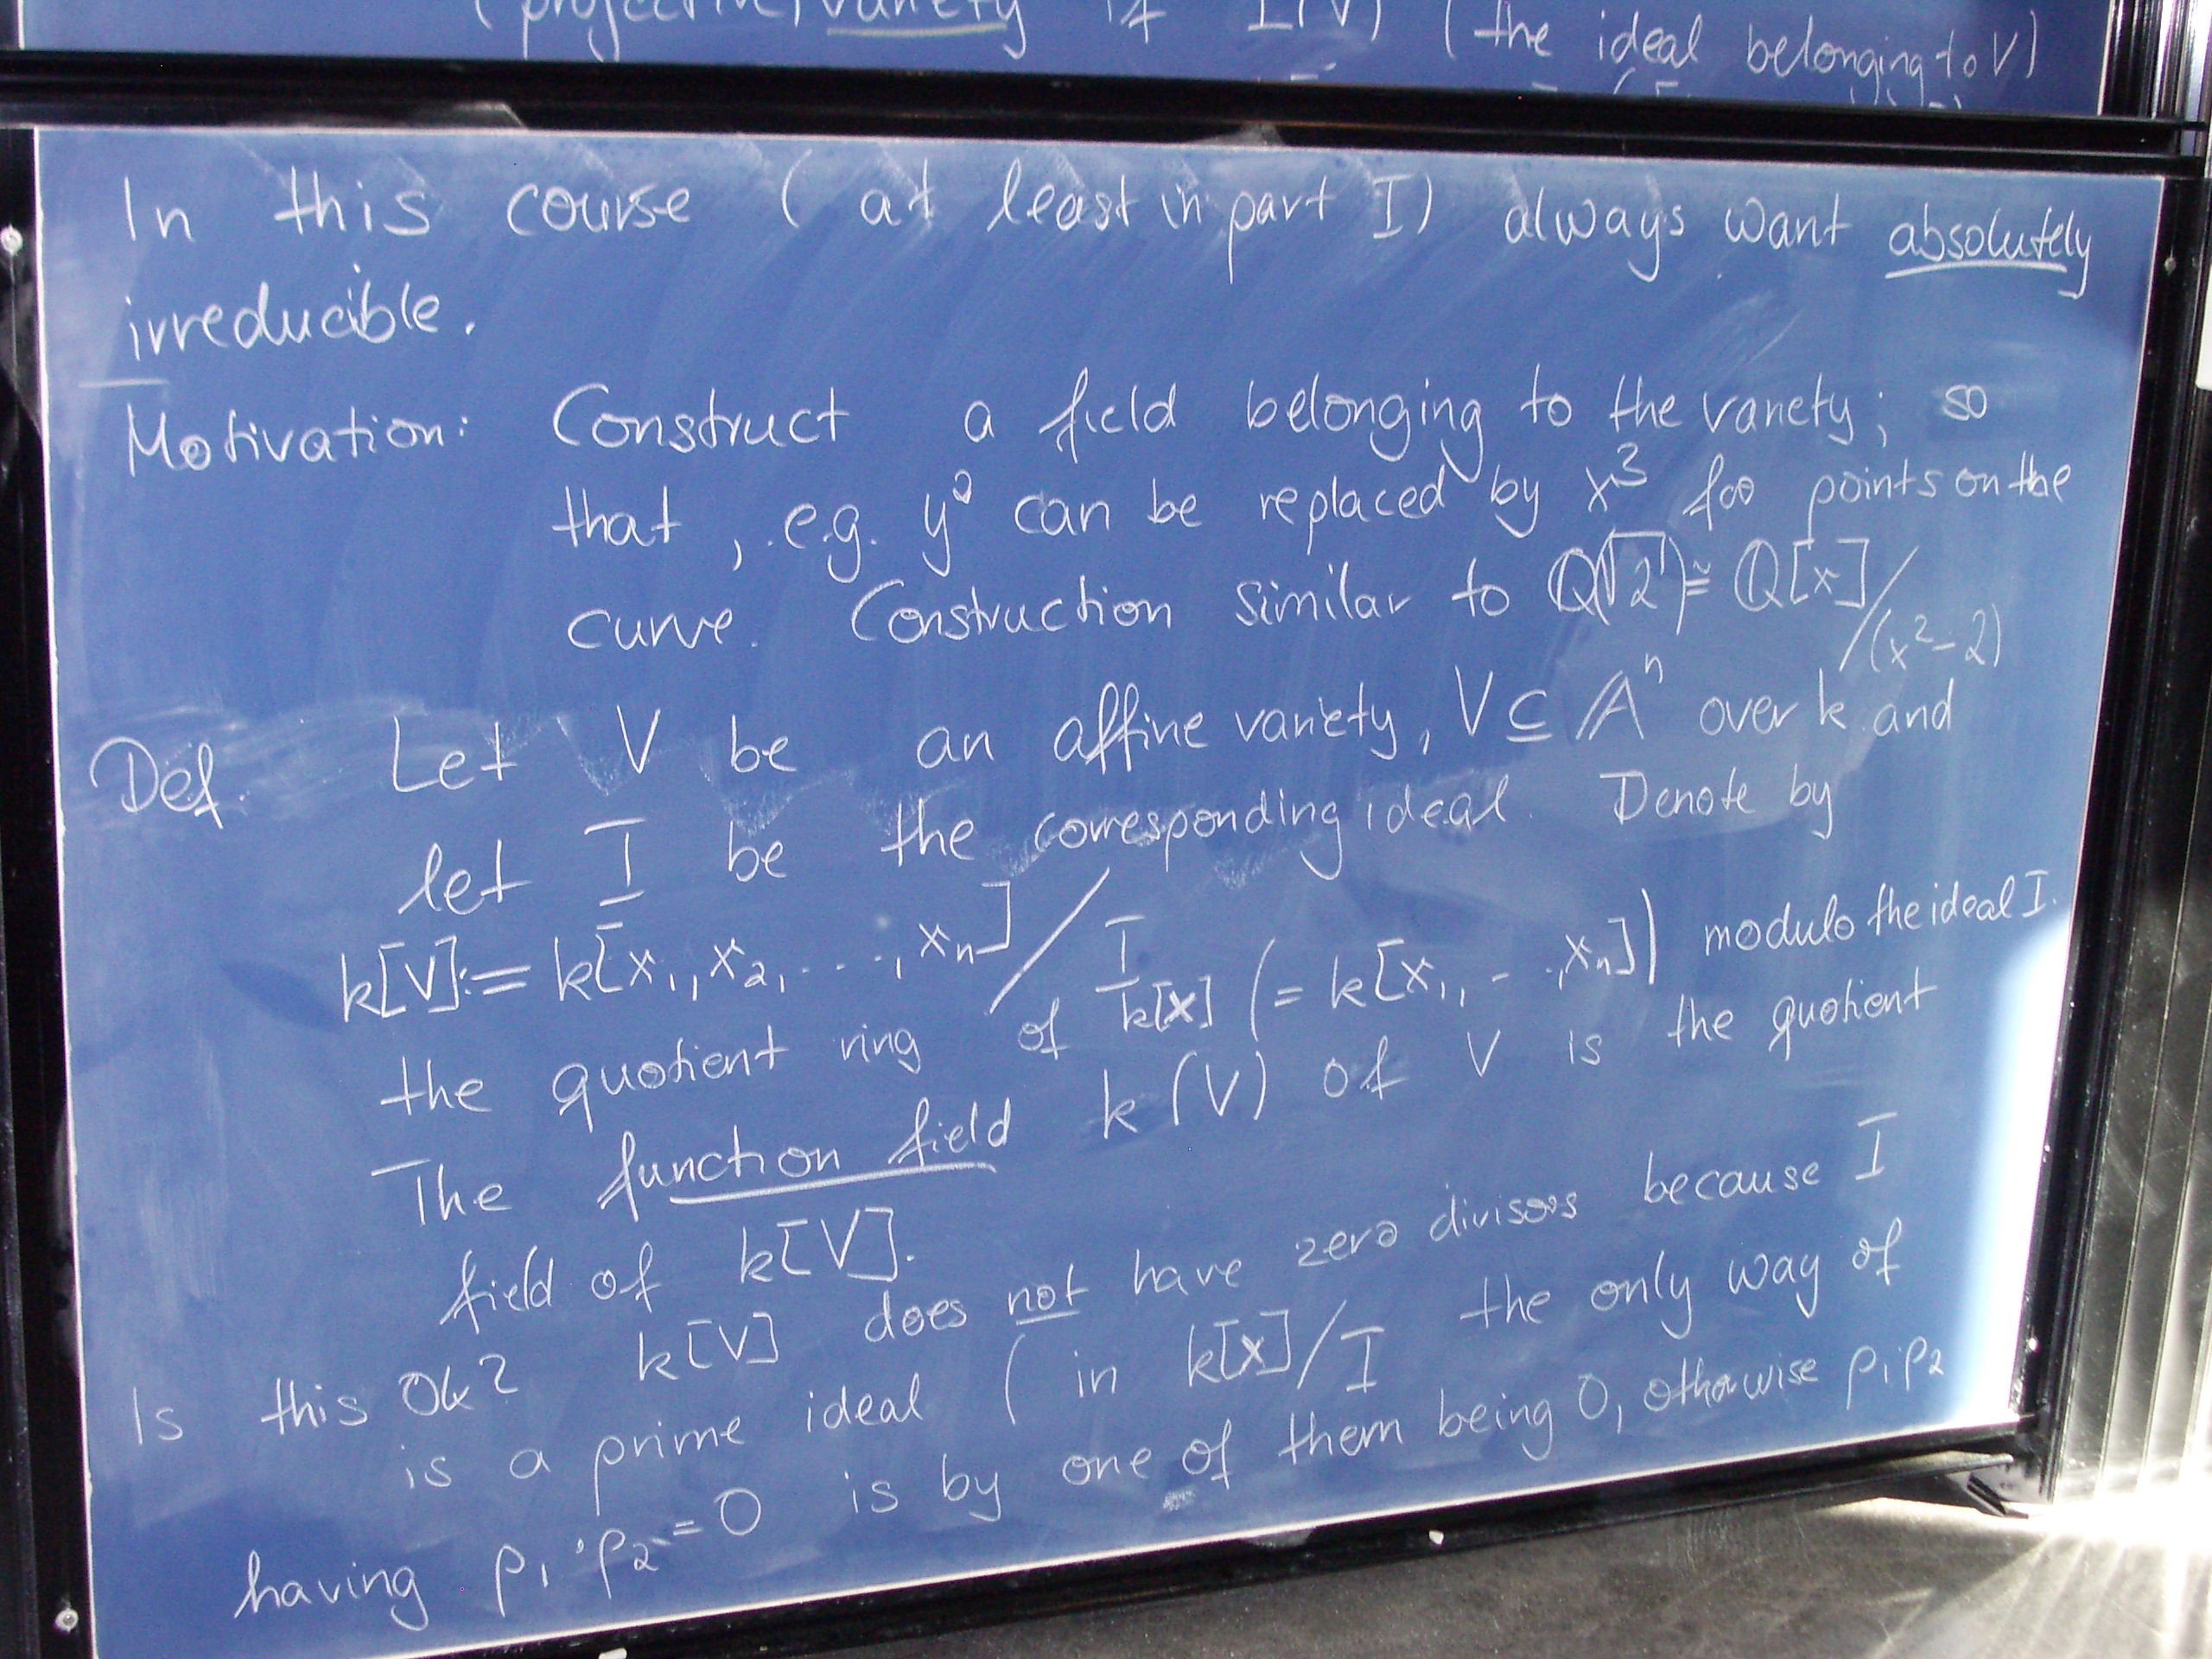 (projective) variety if I(V) (the ideal belonging to V)
In this course (at least in part I) always want absolutely
irreducible.
Motivation: Construct a field belonging to the variety; so
that, e.g. y² can be replaced by x³ for points on the
curve. Construction similar to Q(√2) ≅ Q[x]/(x²-2)
Def. Let V be an affine variety, V ⊆ 𝔸ⁿ over k and
let I be the corresponding ideal. Denote by
k[V] := k[x₁, x₂, ..., xₙ] / I
the quotient ring of k[x] (= k[x₁, ..., xₙ]) modulo the ideal I.
The function field k(V) of V is the quotient
field of k[V].
Is this Ok? k[V] does not have zero divisors because I
is a prime ideal (in k[x]/I the only way of
having p₁·p₂=0 is by one of them being 0, otherwise p₁·p₂